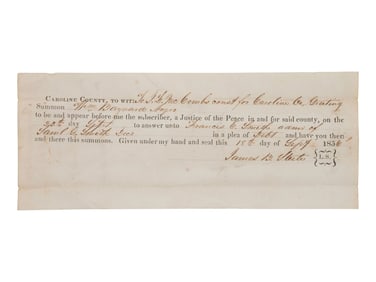 CAROLINE COUNTY, TO WIT: J. T. McCombs const for Caroline Co, Greeting
Summon Wm Barnard Negro
to be and appear before me the subscriber, a Justice of the Peace in and for said county, on the
22nd day Sept to answer unto Frances E Smith admr of
Saml C Smith Decd in a plea of Debt and have you then
and there this summons. Given under my hand and seal this 18th day of Sept 185
James B
L.S.